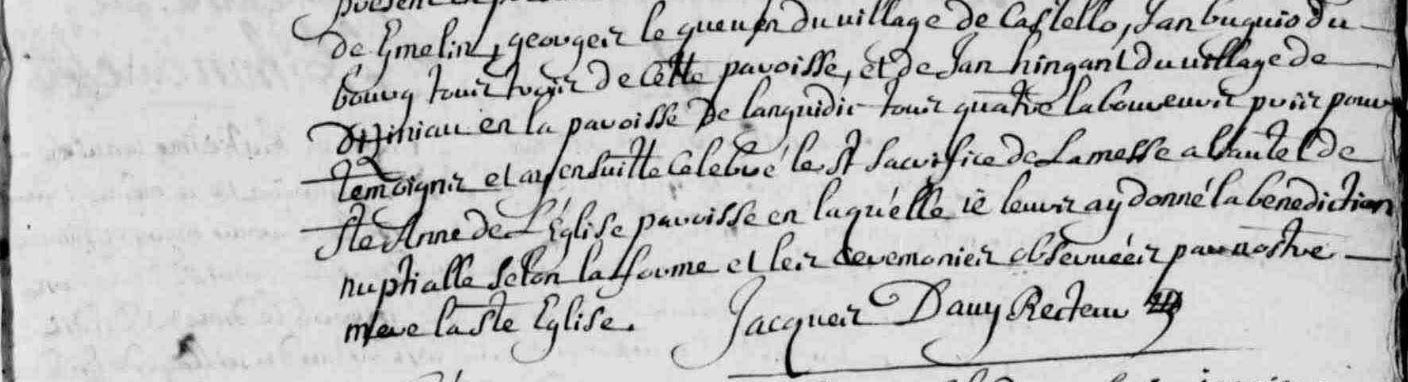 de Emelin, georges le queuen du village de Castello, Jan buquio du
bourg touts trois de cette paroisse, et de Jan hingant du village de
en la paroisse de languidic touts quatre laboureurs pris pour
temoigns et ay ensuitte celebré le st sacrifice de La messe a l'autel de
ste Anne de L'Eglise paroisse en laquelle ie leurs ay donné la benediction
nuptialle selon la forme et les ceremonies observéés par nostre
mere la ste Eglise. Jacques Dauy Recteur